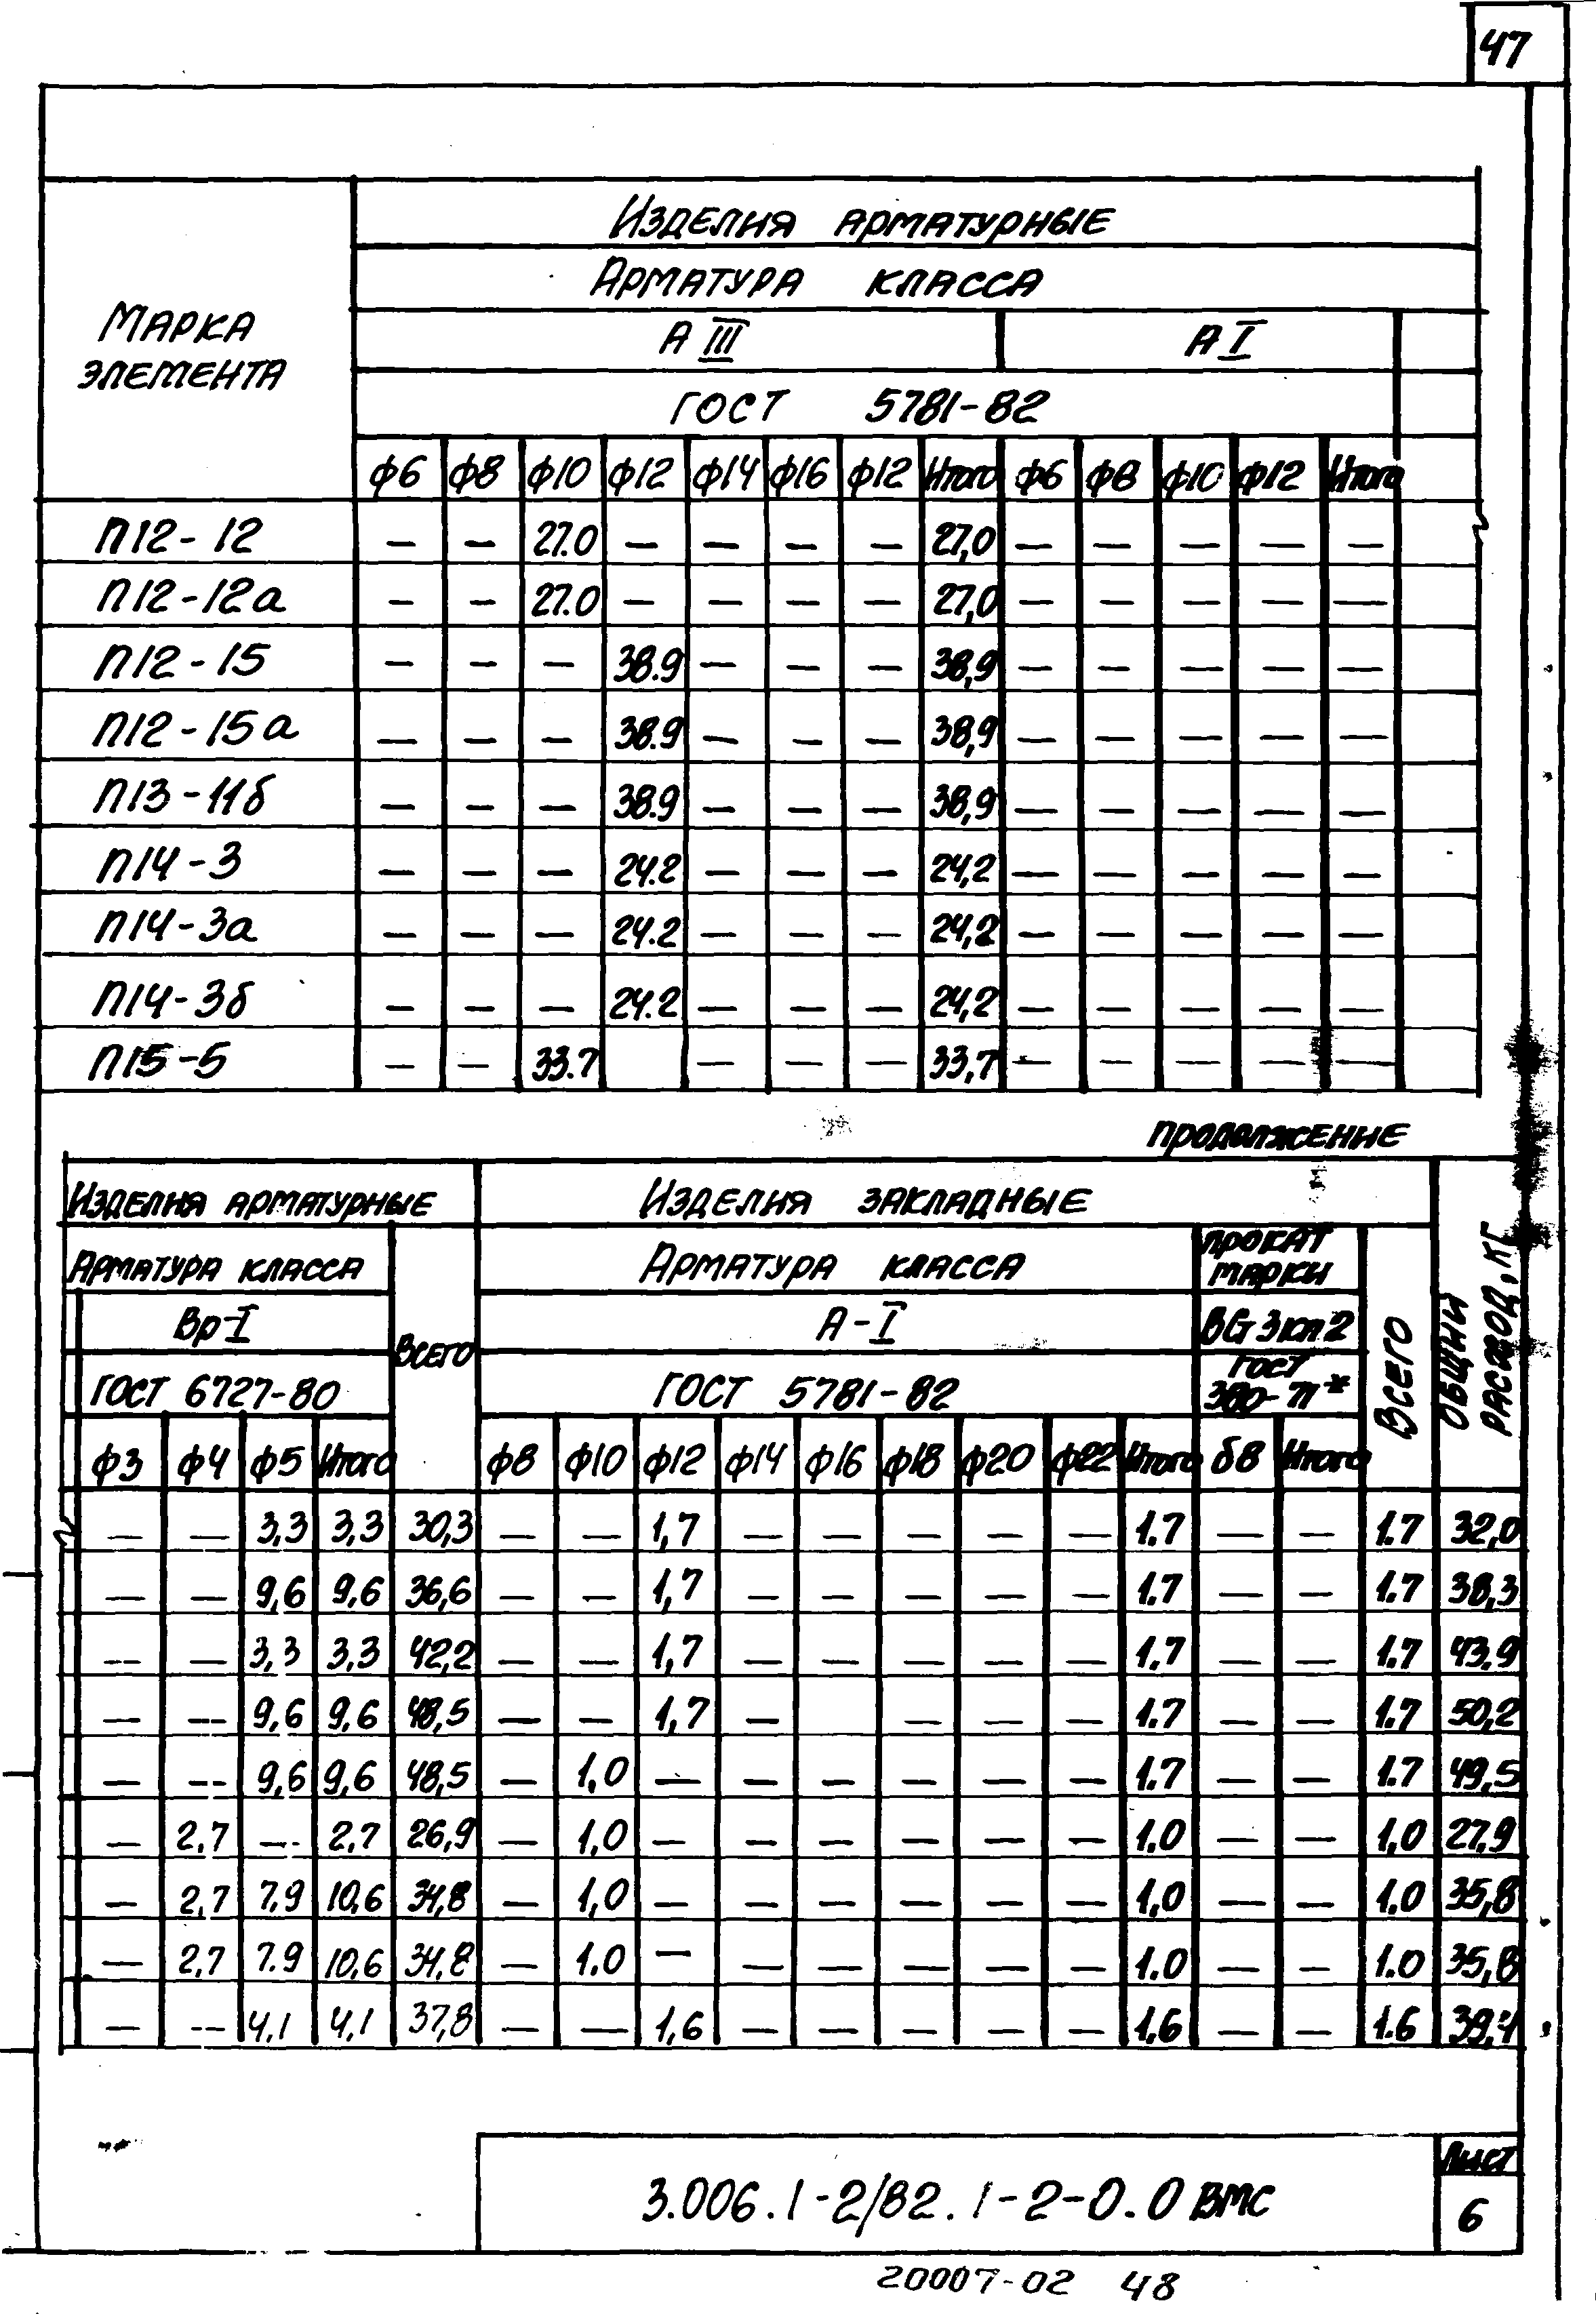 47
Изделия арматурные
Арматура класса
Марка элемента
А III А I
ГОСТ 5781-82
ф6 ф8 ф10 ф12 ф14 ф16 ф12 Итого ф6 ф8 ф10 ф12 Итого
П12-12 — — 27.0 — — — — 27,0 — — — — —
П12-12а — — 27.0 — — — — 27,0 — — — — —
П12-15 — — — 38.9 — — — 38,9 — — — — —
П12-15а — — — 38.9 — — — 38,9 — — — — —
П13-11б — — — 38.9 — — — 38,9 — — — — —
П14-3 — — — 24.2 — — — 24,2 — — — — —
П14-3а — — — 24.2 — — — 24,2 — — — — —
П14-3б — — — 24.2 — — — 24,2 — — — — —
П15-5 — — 33.7 — — — 33,7 — — — — —
продолжение
Изделия арматурные Изделия закладные
Арматура класса Всего Арматура класса Прокат марки Всего Общий расход, кг
Вр-I А-I ВСт3кп2
ГОСТ 6727-80 ГОСТ 5781-82 ГОСТ 380-71*
ф3 ф4 ф5 Итого ф8 ф10 ф12 ф14 ф16 ф18 ф20 ф22 Итого δ8 Итого
— — 3,3 3,3 30,3 — — 1,7 — — — — — 1.7 — — 1.7 32,0
— — 9,6 9,6 36,6 — — 1,7 — — — — — 1.7 — — 1.7 38,3
— — 3,3 3,3 42,2 — — 1,7 — — — — — 1.7 — — 1.7 43.9
— — 9,6 9,6 48,5 — — 1,7 — — — — 1.7 — — 1.7 50,2
— — 9,6 9,6 48,5 — 1,0 — — — — — — 1.7 — — 1.7 49,5
— 2,7 — 2,7 26,9 — 1,0 — — — — — — 1.0 — — 1,0 27.9
— 2,7 7,9 10,6 34,8 — 1,0 — — — — — — 1,0 — — 1.0 35,8
— 2,7 7.9 10,6 34,8 — 1.0 — — — — — — 1.0 — — 1.0 35,8
— — 4,1 4,1 37,8 — — 1,6 — — — — — 1,6 — — 1.6 39,4
3.006.1-2/82.1-2-0.0 ВМС
Лист
6
20007-02 48